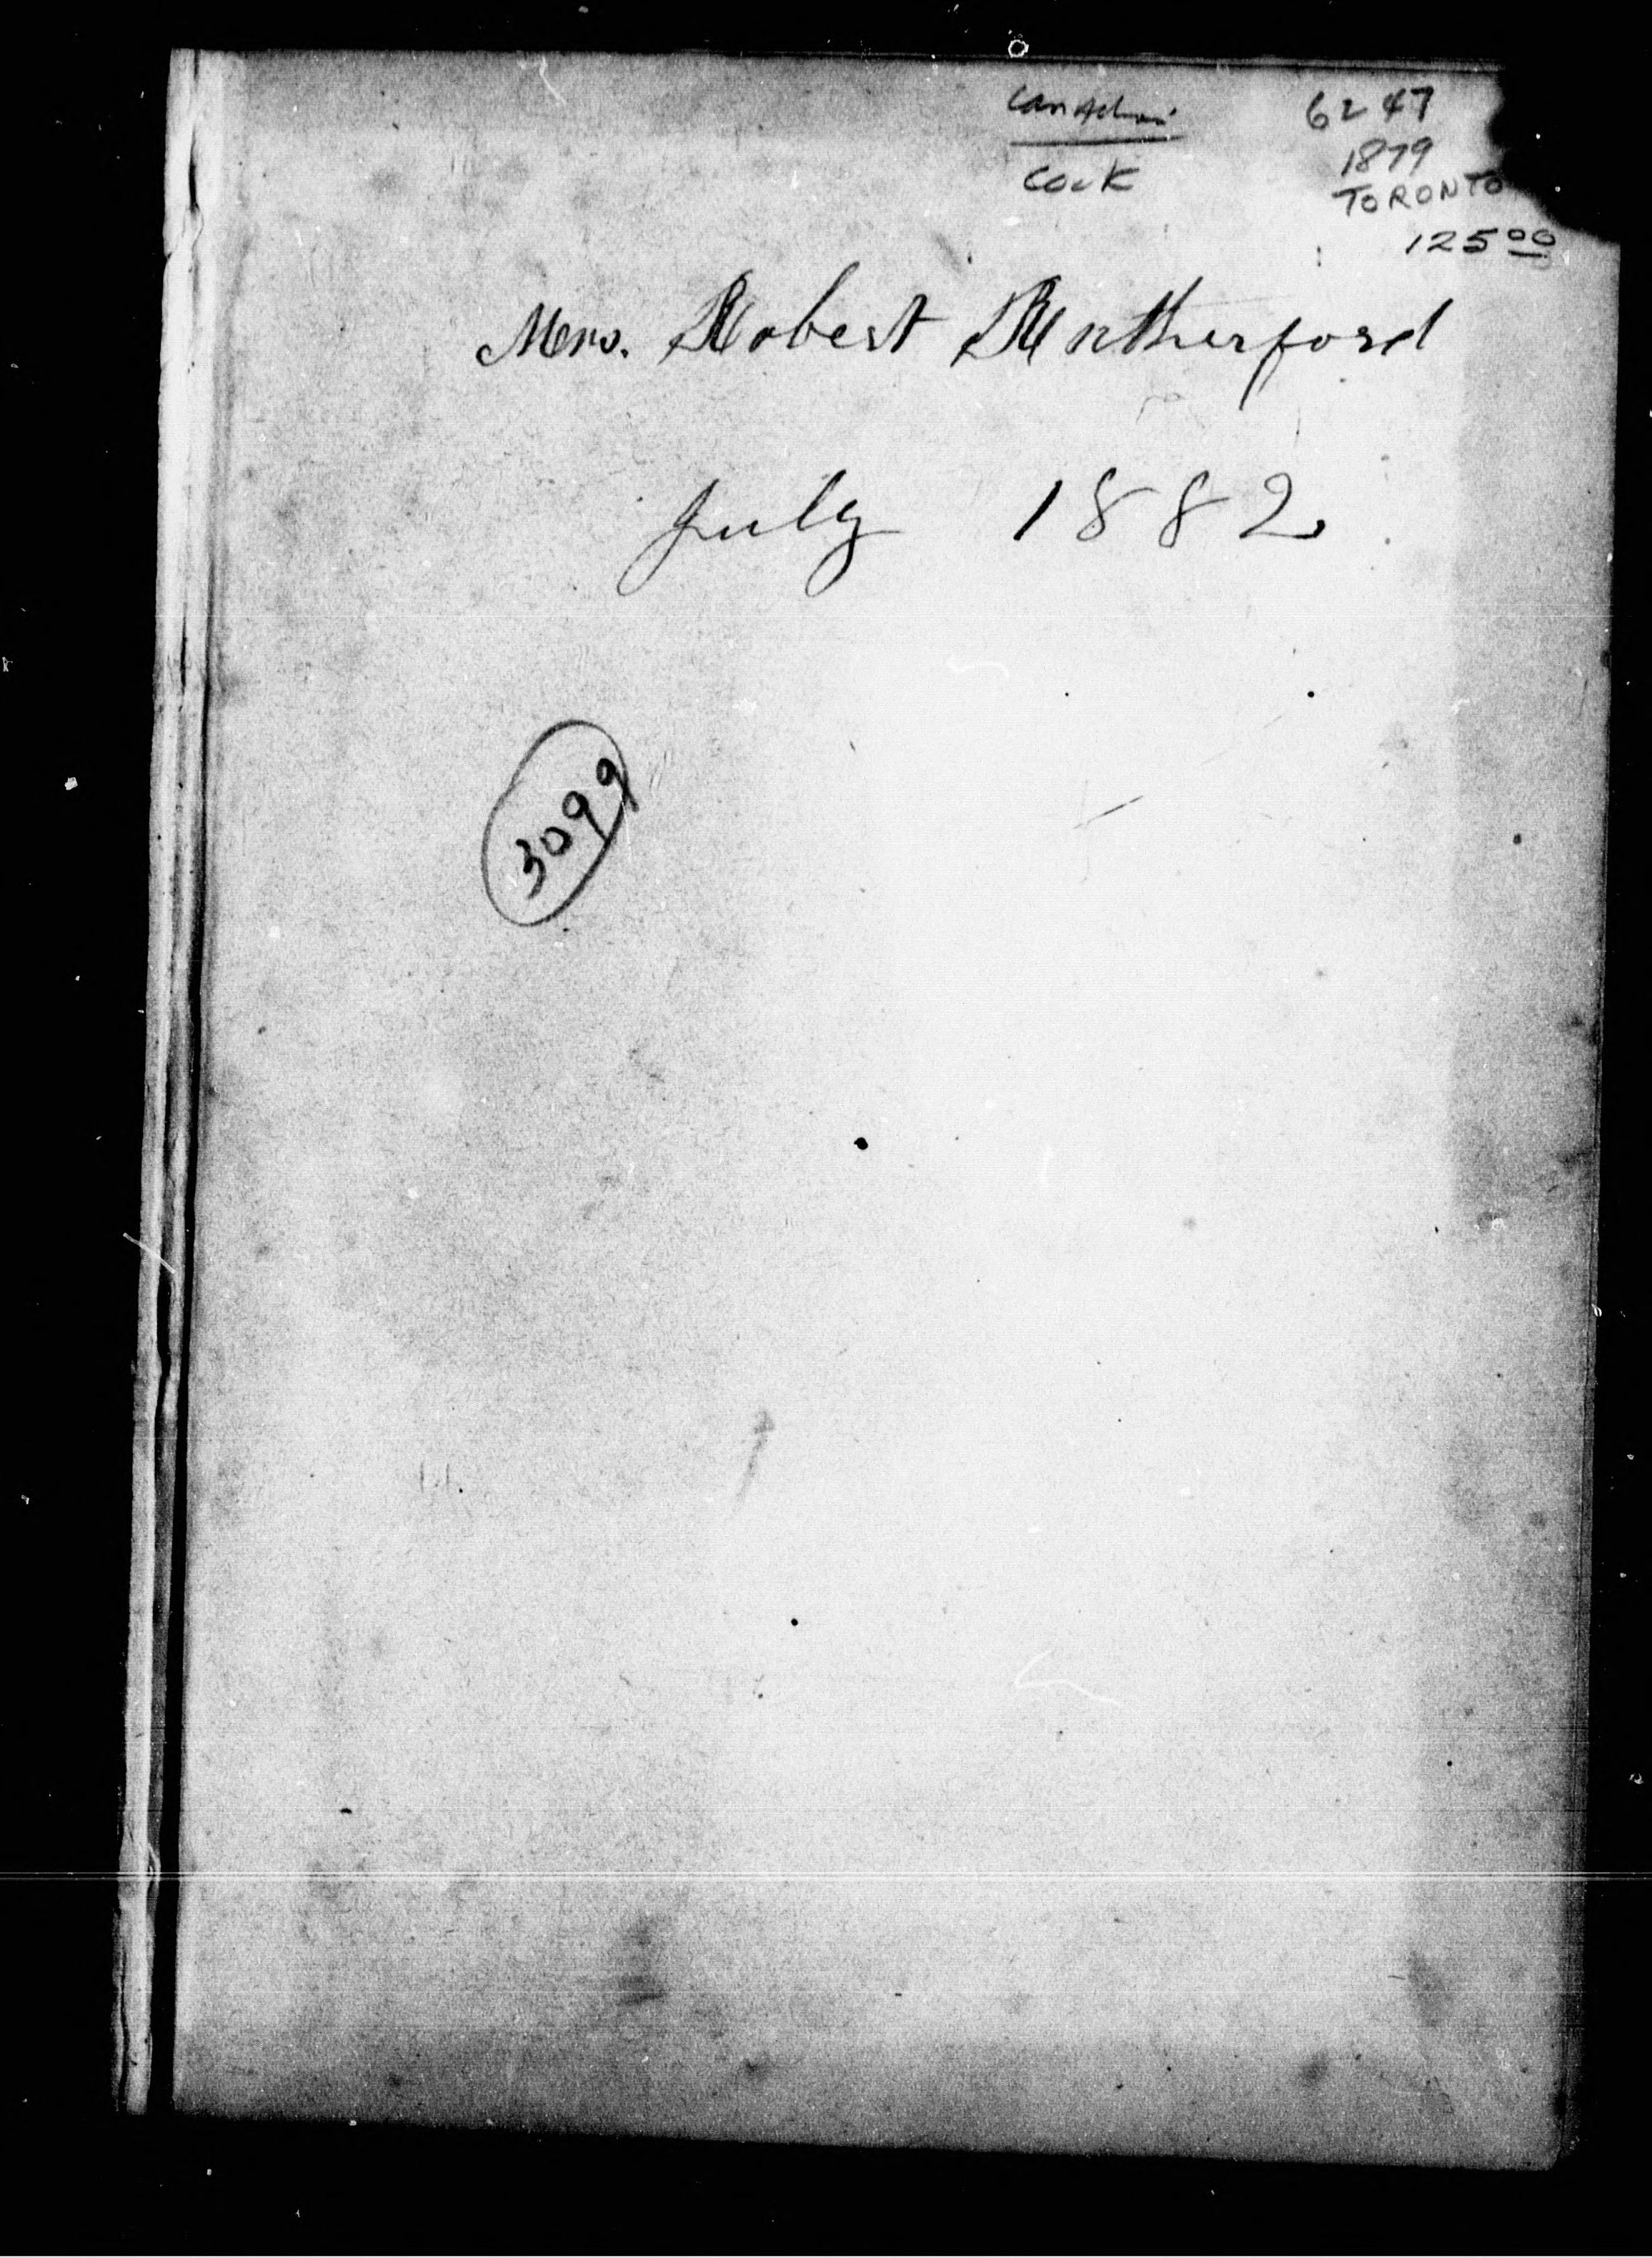 Canadian
Cook
6247
1879
TORONTO
125 00
Mrs. Robert Rutherford
July 1882
3099